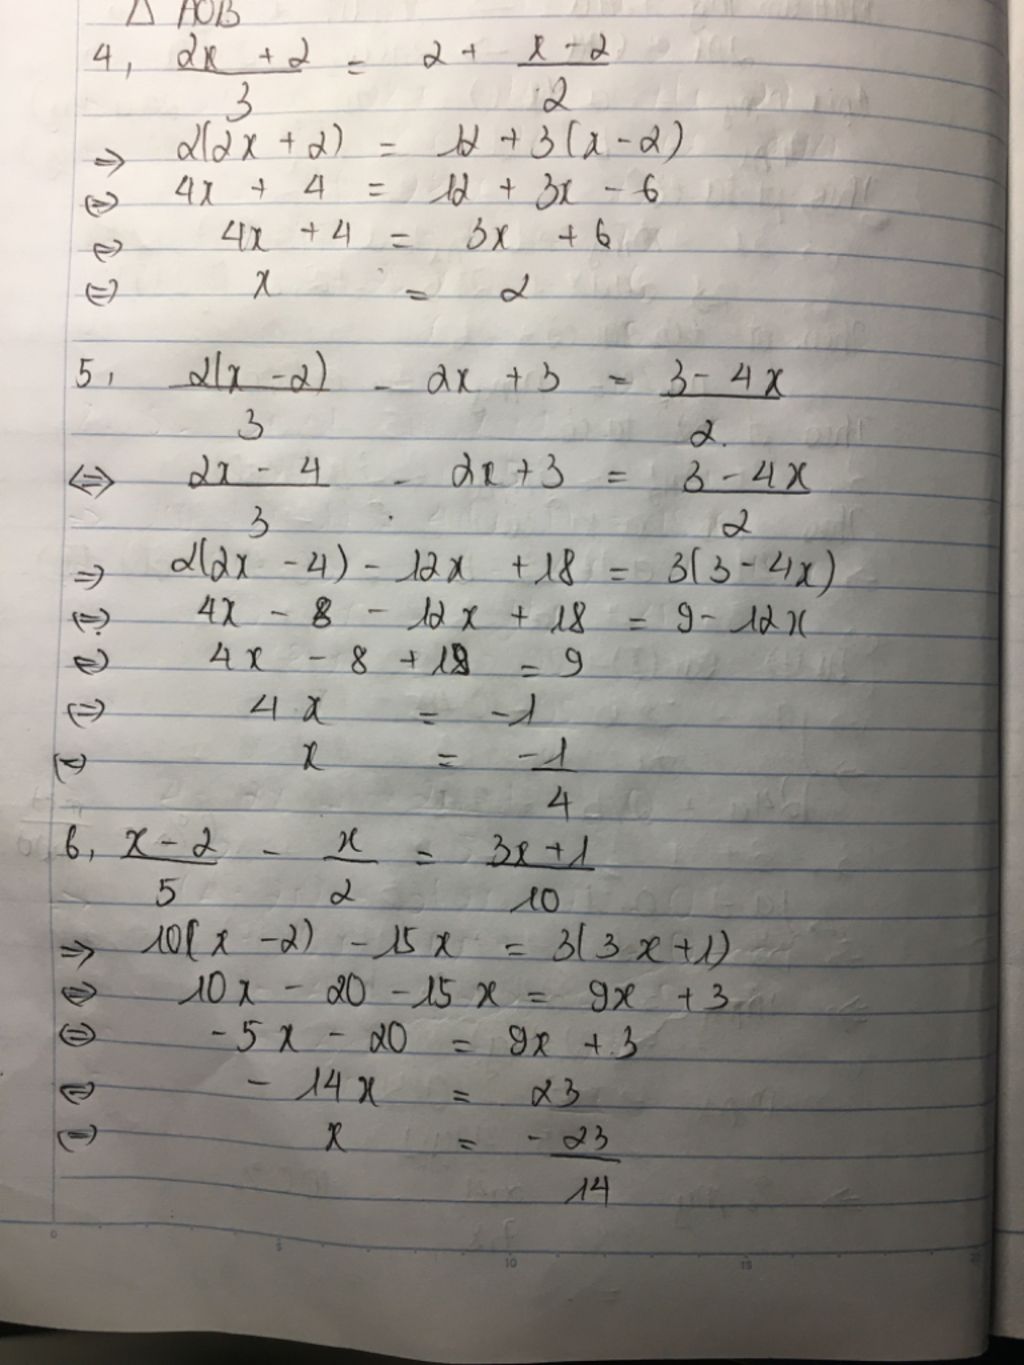 △ AOB
4, (2x + 2)/3 = 2 + (x - 2)/2
⇒ 2(2x + 2) = 12 + 3(x - 2)
⇔ 4x + 4 = 12 + 3x - 6
⇔ 4x + 4 = 3x + 6
⇔ x = 2
5, 2(x - 2)/3 - 2x + 3 = (3 - 4x)/2
⇔ (2x - 4)/3 - 2x + 3 = (3 - 4x)/2
⇒ 2(2x - 4) - 12x + 18 = 3(3 - 4x)
⇔ 4x - 8 - 12x + 18 = 9 - 12x
⇔ 4x - 8 + 18 = 9
⇔ 4x = -1
⇔ x = -1/4
6, (x - 2)/5 - x/2 = (3x + 1)/10
⇒ 10(x - 2) - 15x = 3(3x + 1)
⇔ 10x - 20 - 15x = 9x + 3
⇔ -5x - 20 = 9x + 3
⇔ -14x = 23
⇔ x = -23/14
0 5 10 15 20